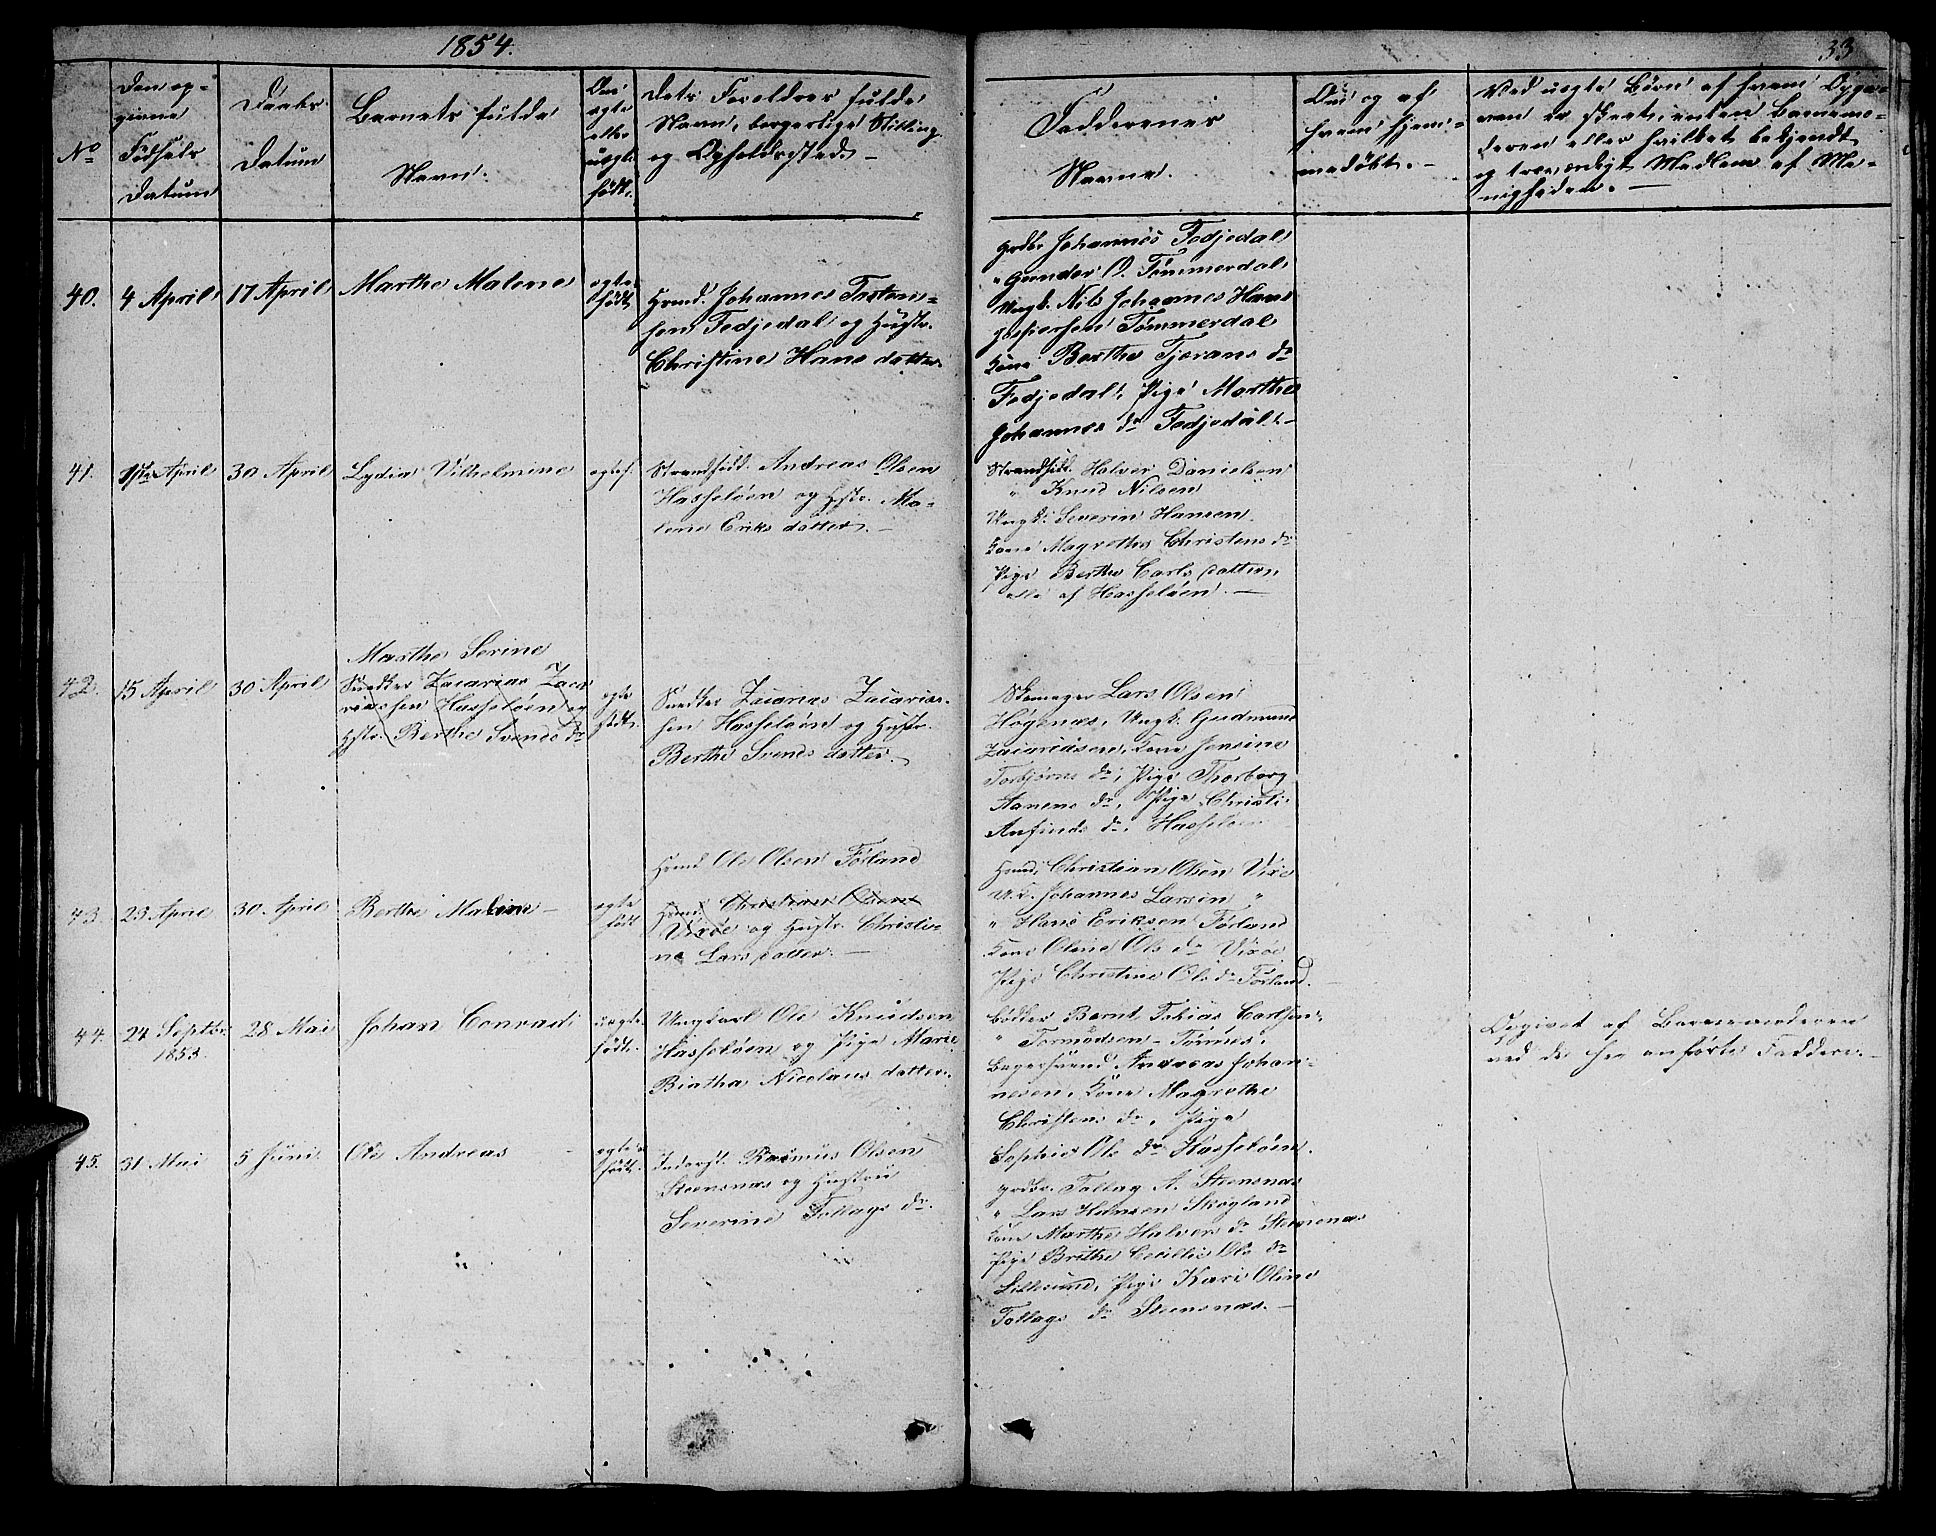 1854.
33
No
Den op-
givne
Fødsels
Datum
Daabs
Datum
Barnets fulde
Navn.
Om
egte
eller
uegte
født.
Dets Foreldres fulde
Navn, borgerlige Stilling
og Opholdssted. —
Faddernes
Navne.
Om og af
hvem hjem-
medøbt. —
Ved uegte Børn af hvem Opgi-
ven er skeet, enten Barnemo-
deren eller hvilket bekjendt
og troværdigt Medlem af Me-
nigheden. —
40.
4 April
17 April
Marthe Malene
egte
født
Hmd. Johannes Torten-
sen Fedjedal og Hustr.
Christine Hans datter
grdbr Johannes Fedjedal
" Gunder O. Tømmerdal
Ungk. Nils Johannes Hans
Jespersen Tømmerdal
Kone Berthe Tjerans dr
Fedjedal, Pige Marthe
Johannes dr Fedjedal. —
41.
1ste April
30 April
Lydia Vilhelmine
egtef.
Strandsidd. Andreas Olsen
Hasseløen og Hstr. Ma-
lene Eriks datter. —
Strandsidd. Halver Danielsen
" Knud Nilsen
Ungk. Severin Hansen.
Kone Magrethe Christens dr
Pige Berthe Carls datter
alle af Hasseløen. —
42.
15 April
30 April
Marthe Serine
Snedker Zacarias Zaca
riassen Hasseløen og
Hstr. Berthe Svends dr
egte
født.
Snedker Zacarias Zacarias-
sen Hasseløen og Hustr.
Berthe Svends datter. —
Skomager Lars Olsen
Høgenæs, Ungk. Gudmund
Zacariasen, Kone Jensine
Torbjørns dr, Pige Thorborg
Aanens dr, Pige Christi
Anfinds dr, Hasseløen
43.
23 April
30 April
Berthe Malene —
egte
født
Hmd Ole Olsen Førland
Hmd. Christian Olsen
Vixøe og Hustr. Christi-
ne Lars datter. —
Hmd. Christian Olsen Vixe
U.K. Johannes Larsen "
" Hans Eriksen Førland
Kone Oline Ols dr Vixøe
Pige Christine Ols dr Førland. —
44.
24 Septbr.
1853.
28 Mai
Johan Conrad
uegte
født.
Ungkarl Ole Knudsen
Hasseløen og Pige Marie
Biatha Nicolaus datter.
Bødker Bernt Tobias Carlsen,
" Tormodsen Tønnes,
Bagersvend Andreas Johan-
nesen, Kone Magrethe
Christens dr, Pige
Sophie Ols dr Hasseløen.
Opgivet af Barnemoderen
ved de her anførte Faddere. —
45.
31 Mai
5 Juni
Ole Andreas
egte
født.
Inderst. Rasmus Olsen
Steensnæs og Hustru
Severine Tollags dr.
grdbr. Tollag A. Steensnæs
" Lars Hansen Skogland
Kone Marthe Halvers dr Steensnæs
Pige Brithe Cecilie Ols dr
Lillesund, Pige Kari Oline
Tollags dr Steensnæs. —